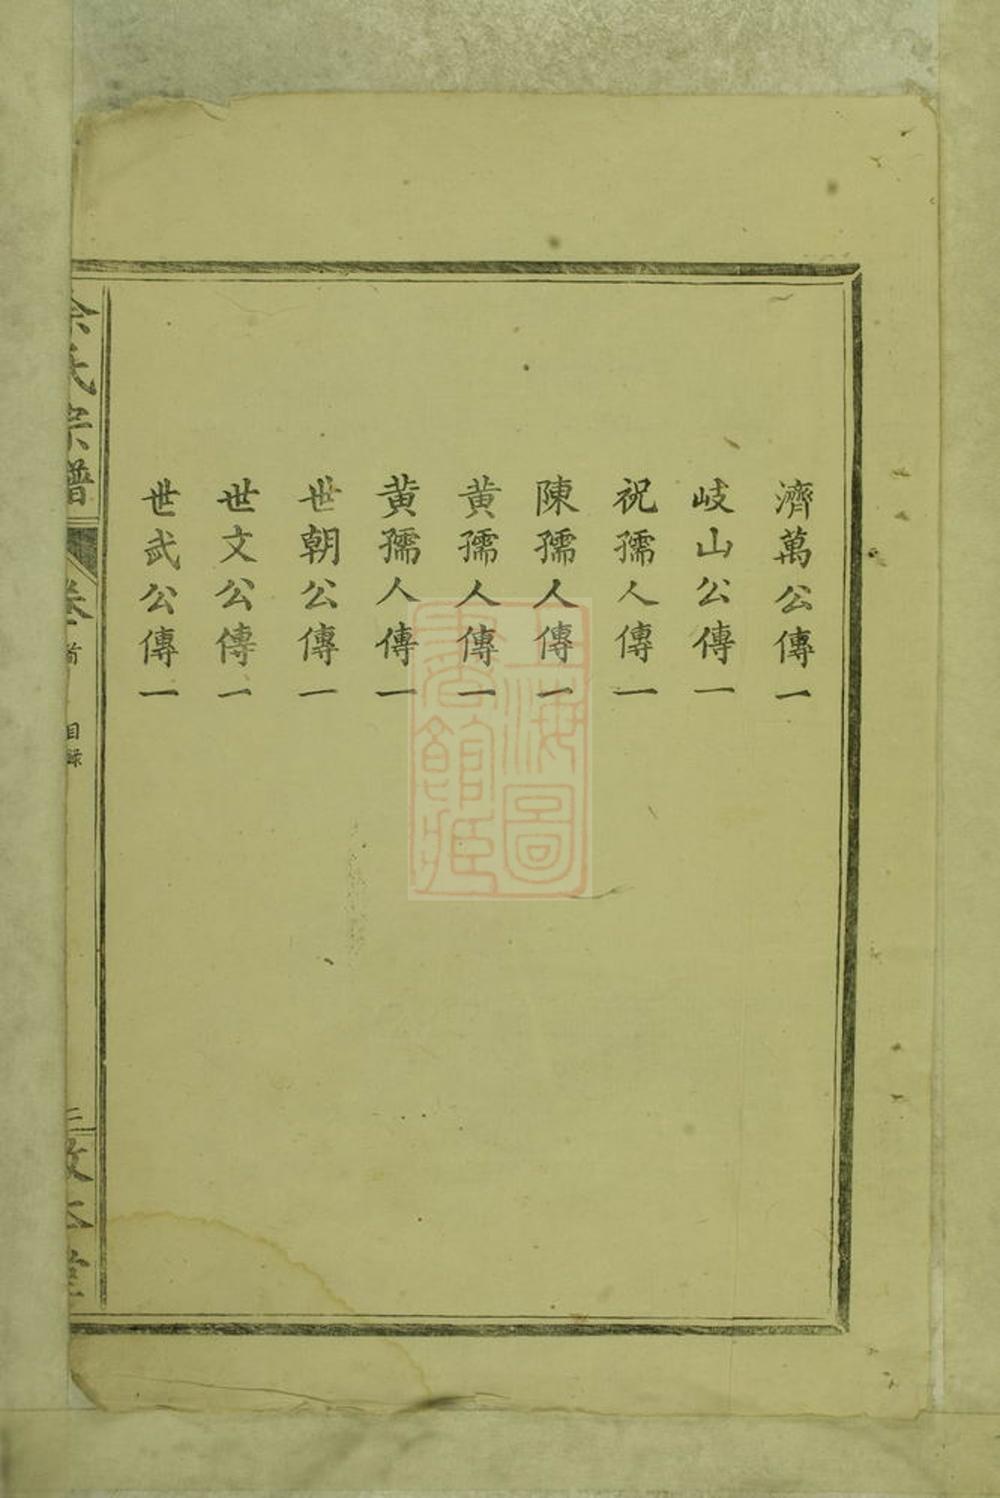 濟萬公傳一
岐山公傳一
祝孺人傳一
陳孺人傳一
黄孺人傳一
黄孺人傳一
世朝公傳一
世文公傳一
世武公傳一
氏宗譜
卷首
目録
上海圖
書館藏